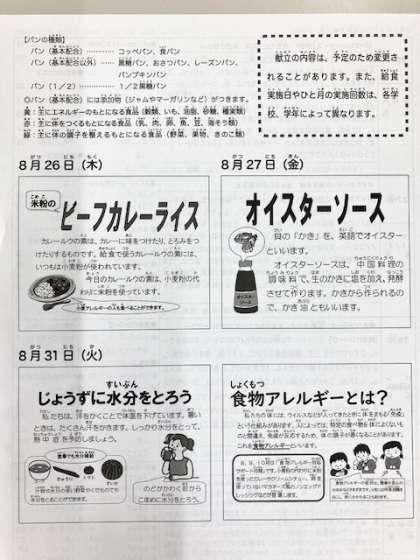 【パンの種類】
パン（基本配合）………… コッペパン、食パン
パン（基本配合以外）…… 黒糖パン、おさつパン、レーズンパン、
パンプキンパン
パン（１/２）………… １/２黒糖パン
◎パン（基本配合）には添加物（ジャムやマーガリンなど）がつきます。
黄：主にエネルギーのもとになる食品（穀類、いも、油脂、砂糖、種実類）
赤：主に体をつくるもとになる食品（乳、肉、卵、魚、豆、海そう類）
緑：主に体の調子を整えるもとになる食品（野菜、果物、きのこ類）
献立の内容は、予定のため変更さ
れることがあります。また、給食
実施日やひと月の実施回数は、各学
校、学年によって異なります。
８月26日（木）
米粉の
ビーフカレーライス
カレールウの素は、カレーに味をつけたり、とろみをつ
けたりするものです。給食で使うカレールウの素には、
いつもは小麦粉が使われています。
今日のカレールウの素は、小麦粉の代
わりに米粉を使っています。
小麦アレルギーの人も食べることができます。
８月27日（金）
オイスターソース
貝の「かき」を、英語でオイスター
といいます。
オイスターソースは、中国料理の
調味料で、生のかきに塩を加え、発酵
させて作ります。かきから作られるの
で、かき油ともいいます。
オイスター
ソース
８月31日（火）
じょうずに水分をとろう
私たちは、汗をかくことで体温を下げています。暑い
ときは、たくさん汗をかきます。しっかり水分をとって、
熱中症を予防しましょう。
食事でも水分補給
きゅうり
トマト
すいか
汁物や水分の多い野菜やくだものでも
水分をとることができます。
のどがかわく前から
こまめに水分をとろう。
食物アレルギーとは？
私たちの体には、ウイルスなどが入ってきたときに体をまもる「免疫」
という仕組みがあります。人によっては、特定の食べ物を体によくないも
のと間違え、免疫が反応するため、体の調子が悪くなることがあります。
これを食物アレルギーといいます。
８、９、10月は「食物アレルギー対応
サポート月間」です。